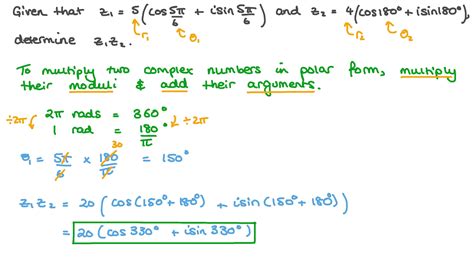 Given that z₁ = 5(cos 5π/6 + i sin 5π/6) and z₂ = 4(cos180° + isin180°),
r₁ θ₁ r₂ θ₂
determine z₁z₂.
To multiply two complex numbers in polar form, multiply
their moduli & add their arguments.
÷2π 2π rads = 360° ÷2π
1 rad = 180°/π
30
θ₁ = 5π/6 × 180/π = 150°
z₁z₂ = 20(cos(150°+180°) + isin(150°+180°))
= 20(cos330° + isin330°)